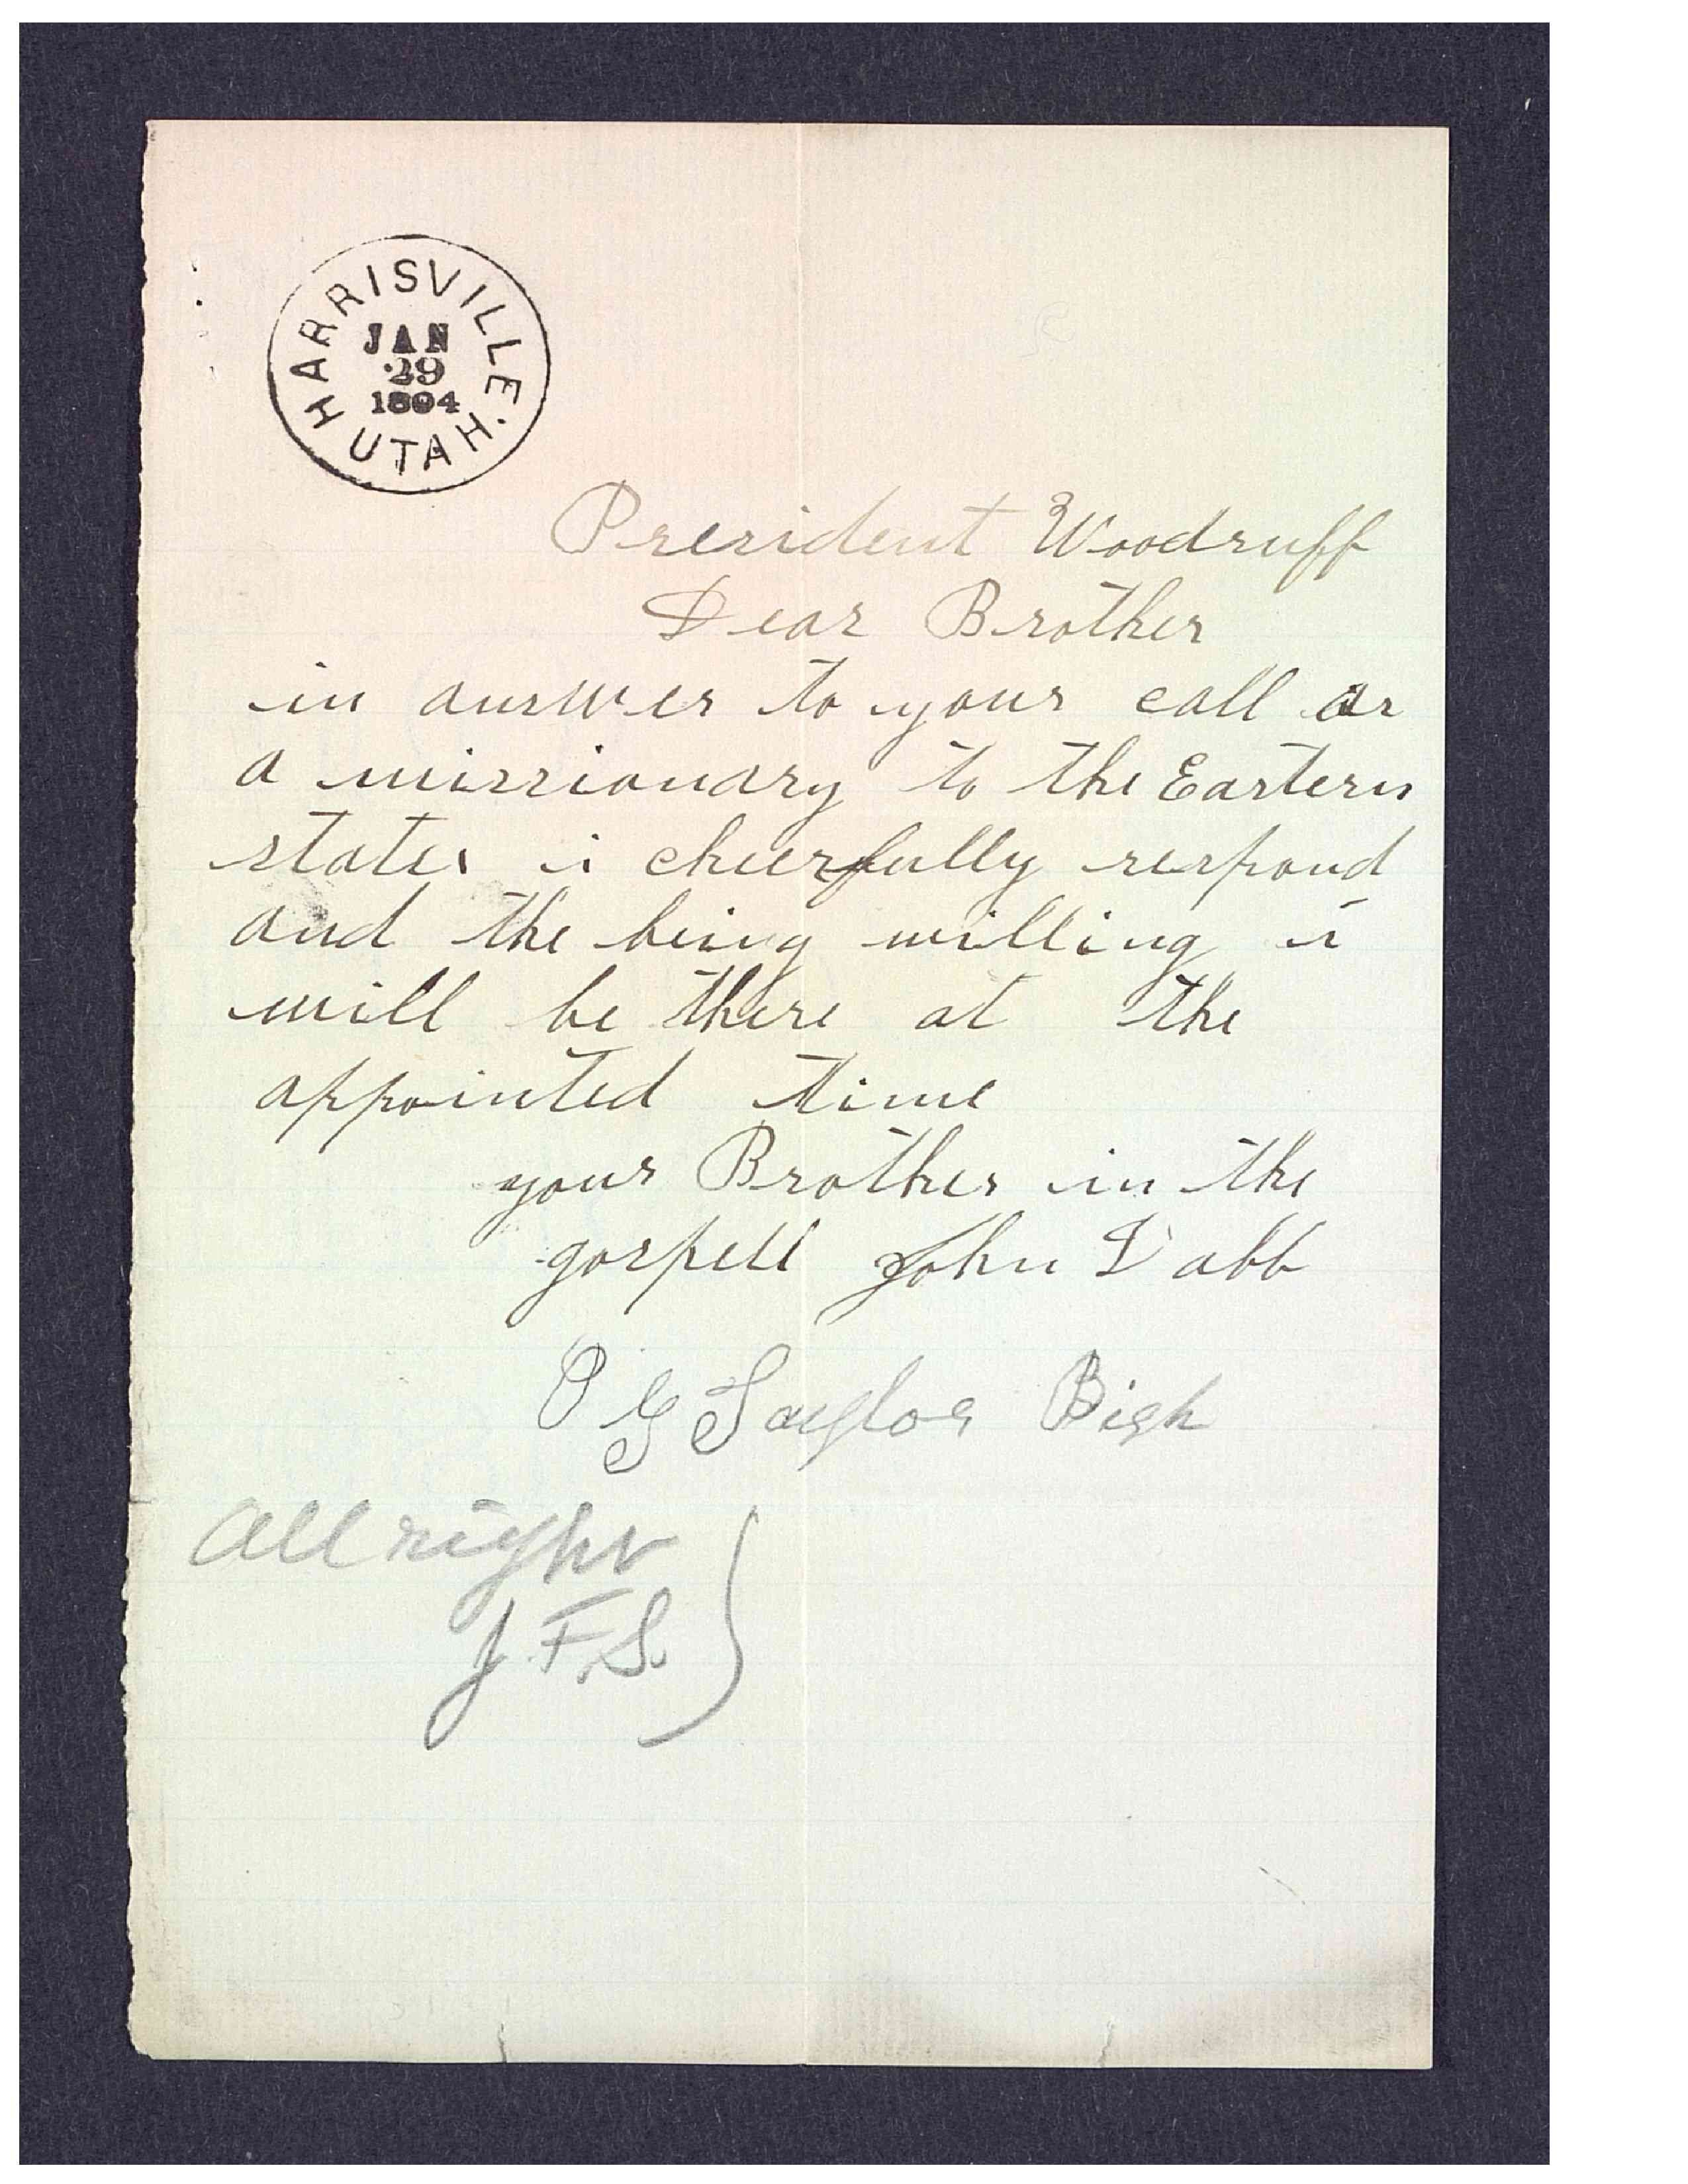 HARRISVILLE
JAN
29
1894
UTAH.
President Woodruff
Dear Brother
in answer to your call as
a missionary to the Eastern
states i cheerfully respond
and the being willing i
will be there at the
appointed time
your Brother in the
gospell John Dabb
P G Taylor Bish
All right
J. F. S.